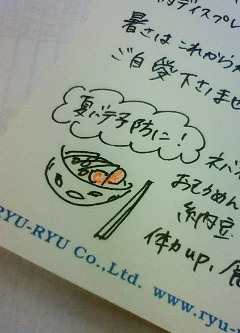 ディスプレ
暑さはこれから
ご自愛下さいませ
夏バテ予防に!
ネバ
納豆
体力up,
RYU-RYU Co.,Ltd. www.ryu-